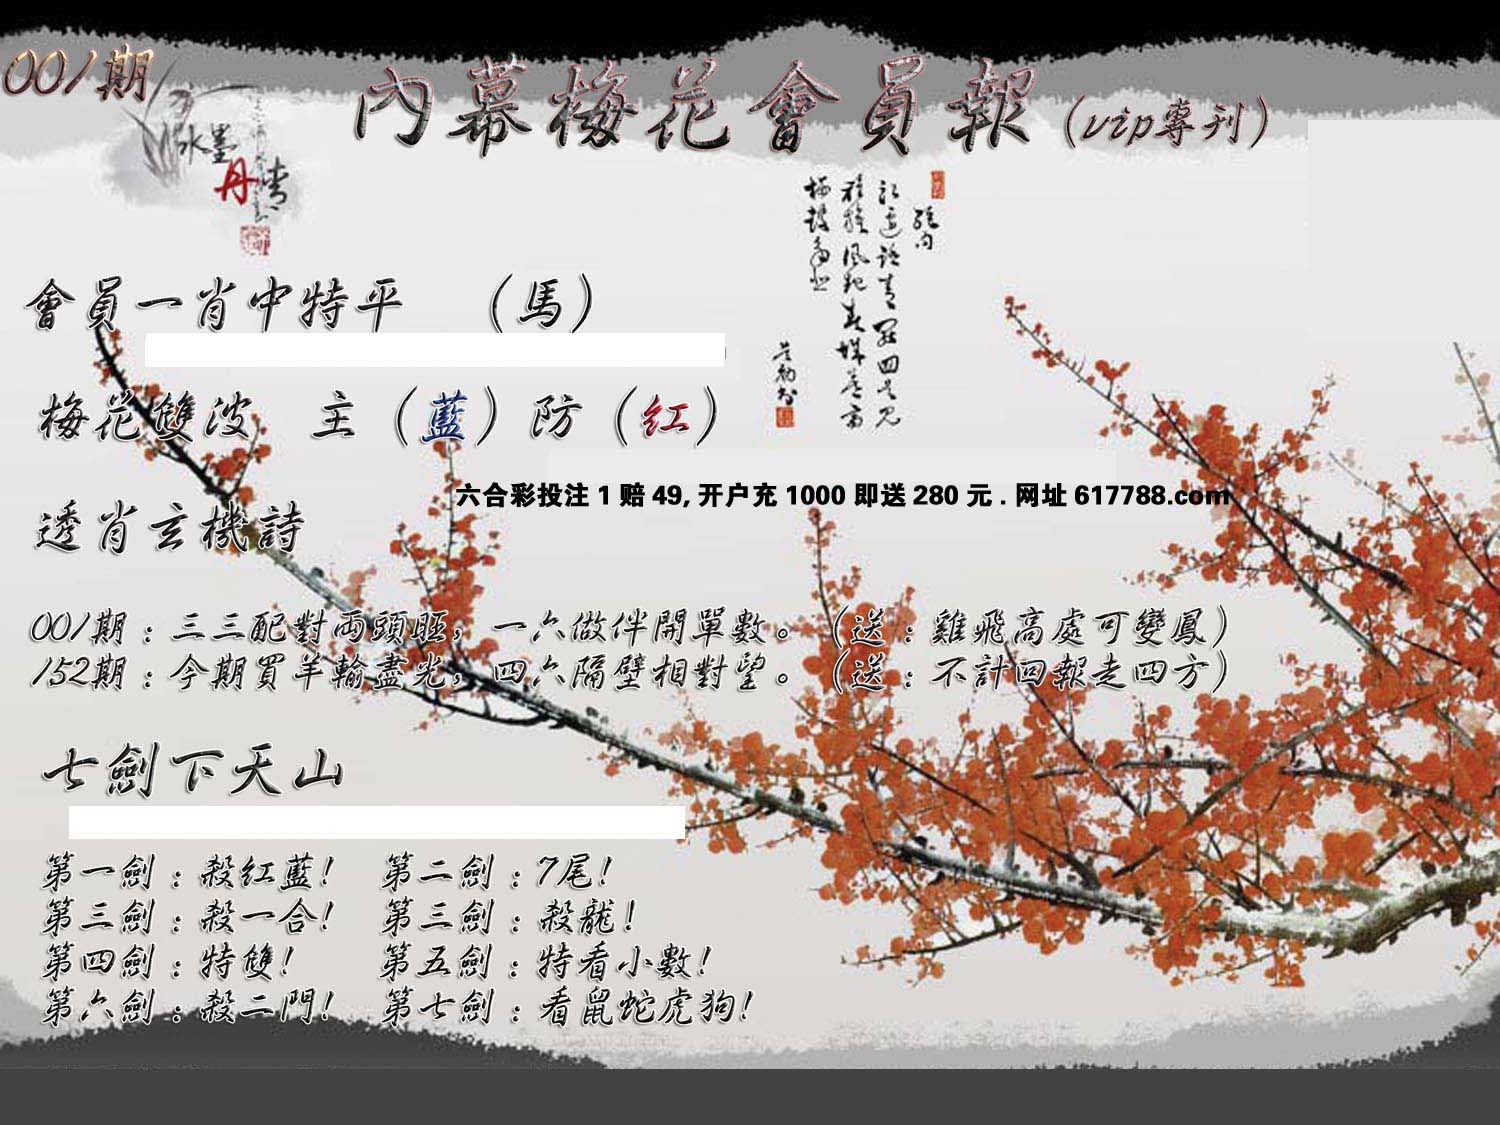 001期
內幕梅花會員報(vip專刊)
水墨
丹青
會員一肖中特平 (馬)
梅花雙波 主(藍)防(紅)
六合彩投注1赔49,开户充1000即送280元.网址617788.com
透肖玄機詩
001期:三三配對両頭旺,一六做伴開單數。(送:雞飛高處可變鳳)
152期:今期買羊輸盡光,四六隔壁相對望。(送:不計回報走四方)
七劍下天山
第一劍:殺紅藍! 第二劍:7尾!
第三劍:殺一合! 第三劍:殺龍!
第四劍:特雙! 第五劍:特看小數!
第六劍:殺二門! 第七劍:看鼠蛇虎狗!